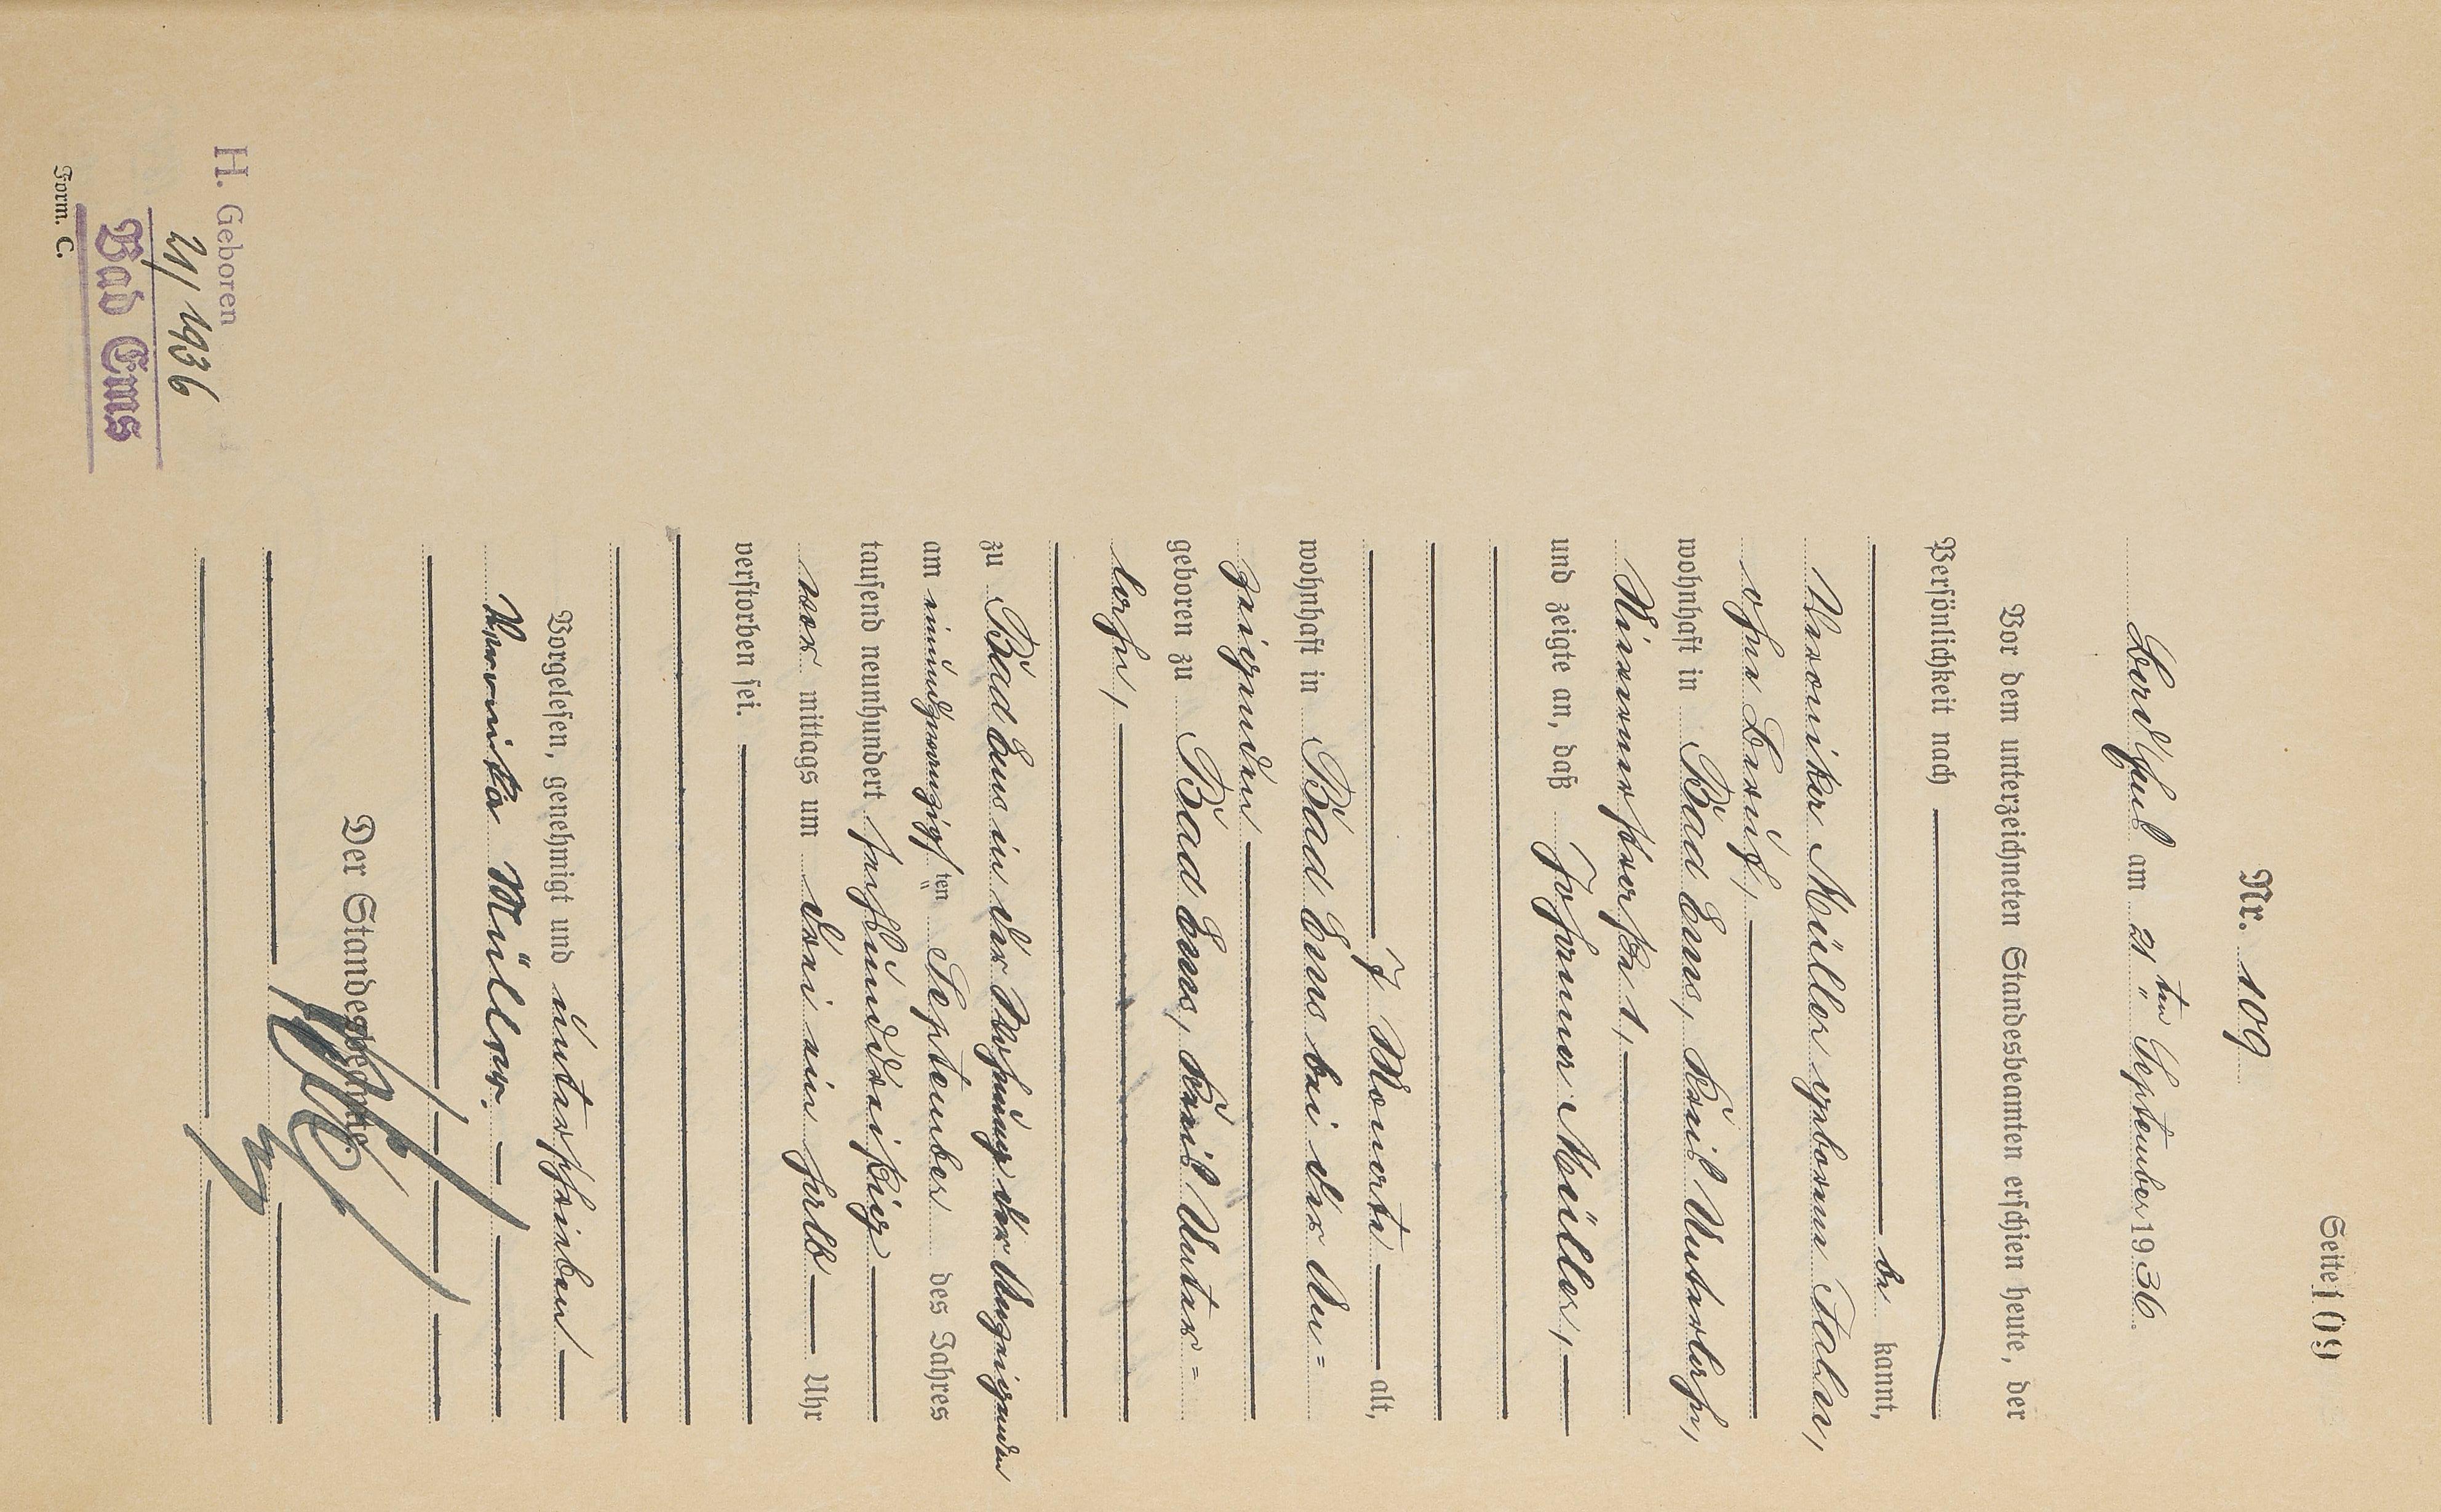 Seite 109
Nr. 109
Bad Ems am 21ten September 1936.
Vor dem unterzeichneten Standesbeamten erschien heute, der
Persönlichkeit nach
be kannt,
Veronika Müller geborene
ohne Beruf,
wohnhaft in Bad Ems, Kreis Unterlahn,
1,
und zeigte an, daß Johanna Müller,
7 Monate alt,
wohnhaft in Bad Ems bei der An=
zeigenden
geboren zu Bad Ems, Kreis Unter=
lahn,
zu Bad Ems in der Wohnung der Anzeigenden
am einundzwanzigsten September des Jahres
tausend neunhundert sechsunddreißig
vor mittags um drei ein halb Uhr
verstorben sei.
Vorgelesen, genehmigt und unterschrieben
Veronika Müller.
Der Standesbeamte.
H. Geboren
21/1936
Bad Ems
Form. C.